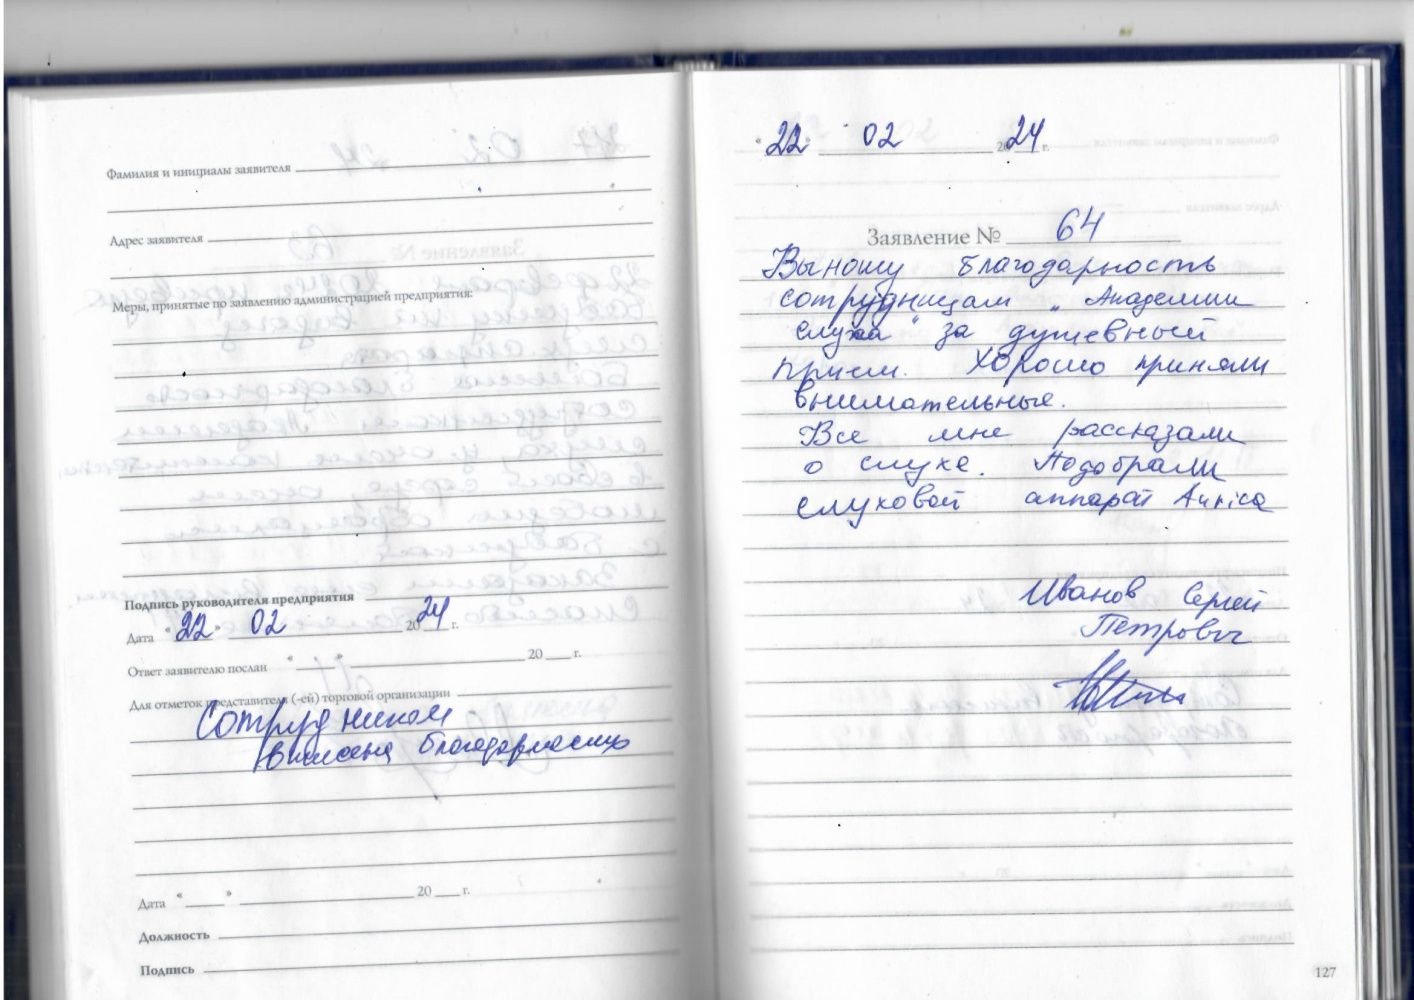 Фамилия и инициалы заявителя
Адрес заявителя
Меры, принятые по заявлению администрацией предприятия:
Подпись руководителя предприятия
Дата "22" 02 2024 г.
Ответ заявителю послан " " 20 г.
Для отметок представителя (-ей) торговой организации
Сотрудникам
вынесена благодарность
Дата " " 20 г.
Должность
Подпись
"22" 02 2024 г.
Заявление № 64
Выношу благодарность
сотрудницам "Академии
слуха" за душевный
прием. Хорошо приняли
внимательные.
Все мне рассказали
о слухе. Подобрали
слуховой аппарат Aurica
Иванов Сергей
Петрович
127